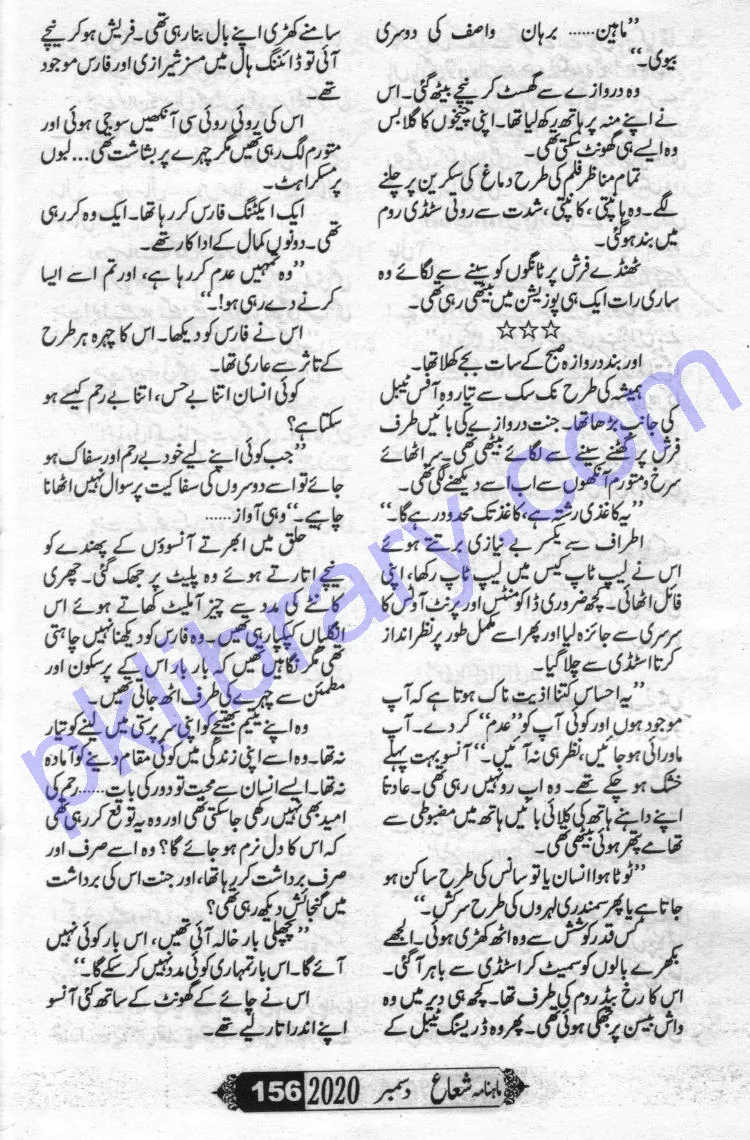 ”ماہین...... برہان واصف کی دوسری
بیوی۔“
وہ دروازے سے گھسٹ کر نیچے بیٹھ گئی۔ اس
نے اپنے منہ پر ہاتھ رکھ لیا تھا۔ اپنی چیخوں کا گلا بس
وہ ایسے ہی گھونٹ سکتی تھی۔
تمام مناظر فلم کی طرح دماغ کی سکرین پر چلنے
لگے۔ وہ ہانپتی، کانپتی، شدت سے روتی سٹڈی روم
میں بند ہو گئی۔
ٹھنڈے فرش پر ٹانگوں کو سینے سے لگائے وہ
ساری رات ایک ہی پوزیشن میں بیٹھی رہی تھی۔
☆☆☆
اور بند دروازہ صبح کے سات بجے کھلا تھا۔
ہمیشہ کی طرح نک سک سے تیار وہ آفس ٹیبل
کی جانب بڑھا تھا۔ جنت دروازے کی بائیں طرف
فرش پر گھٹنے سینے سے لگائے بیٹھی تھی۔ سر اٹھائے
سرخ و متورم آنکھوں سے اب اسے دیکھنے لگی تھی۔
”یہ کاغذی رشتہ ہے، کاغذ تک محدود رہے گا۔“
اطراف سے یکسر بے نیازی برتتے ہوئے
اس نے لیپ ٹاپ کیس میں لیپ ٹاپ رکھا، اپنی
فائل اٹھائی۔ کچھ ضروری ڈاکومنٹس اور پرنٹ آؤٹس کا
سرسری سے جائزہ لیا اور پھر اسے مکمل طور پر نظر انداز
کرتا اسٹڈی سے چلا گیا۔
”یہ احساس کتنا اذیت ناک ہوتا ہے کہ آپ
موجود ہوں اور کوئی آپ کو ”عدم“ کر دے۔ آپ
ماورائی ہو جائیں، نظر ہی نہ آئیں۔“ آنسو بہت پہلے
خشک ہو چکے تھے۔ وہ اب رو نہیں رہی تھی۔ عادتاً
اپنے داہنے ہاتھ کی کلائی بائیں ہاتھ میں مضبوطی سے
تھامے پتھر ہوئی بیٹھی تھی۔
”ٹوٹا ہوا انسان یا تو سانس کی طرح ساکن ہو
جاتا ہے یا پھر سمندری لہروں کی طرح سرکش۔“
کس قدر کوشش سے وہ اٹھ کھڑی ہوئی۔ الجھے
بکھرے بالوں کو سمیٹ کر اسٹڈی سے باہر آ گئی۔
اس کا رخ بیڈ روم کی طرف تھا۔ کچھ ہی دیر میں وہ
واش بیسن پر جھکی ہوئی تھی۔ پھر وہ ڈریسنگ ٹیبل کے
سامنے کھڑی اپنے بال بنا رہی تھی۔ فریش ہو کر نیچے
آئی تو ڈائننگ ہال میں مسز شیرازی اور فارس موجود
تھے۔
اس کی روئی روئی سی آنکھیں سوجی ہوئی اور
متورم لگ رہی تھیں مگر چہرے پر بشاشت تھی... لبوں
پر مسکراہٹ۔
ایک ایکٹنگ فارس کر رہا تھا۔ ایک وہ کر رہی
تھی۔ دونوں کمال کے اداکار تھے۔
”وہ تمہیں عدم کر رہا ہے، اور تم اسے ایسا
کرنے دے رہی ہو!۔“
اس نے فارس کو دیکھا۔ اس کا چہرہ ہر طرح
کے تاثر سے عاری تھا۔
کوئی انسان اتنا بے حس، اتنا بے رحم کیسے ہو
سکتا ہے؟
”جب کوئی اپنے لیے خود بے رحم اور سفاک ہو
جائے تو اسے دوسروں کی سفاکیت پر سوال نہیں اٹھانا
چاہیے۔“ وہی آواز......
حلق میں ابھرتے آنسوؤں کے پھندے کو
نیچے اتارتے ہوئے وہ پلیٹ پر جھک گئی۔ چھری
کانٹے کی مدد سے چیز آملیٹ کھاتے ہوئے اس
انگلیاں کپکپا رہی تھیں۔ وہ فارس کو دیکھنا نہیں چاہتی
تھی مگر نگاہیں تھیں کہ بار بار اس کے پرسکون اور
مطمئن سے چہرے کی طرف اٹھ جاتی تھیں۔
وہ اپنے یتیم بھتیجے کو اپنی سرپرستی میں لینے کو تیار
نہ تھا۔ وہ اسے اپنی زندگی میں کوئی مقام دینے کو آمادہ
نہ تھا۔ ایسے انسان سے محبت تو دور کی بات...... رحم کی
امید بھی نہیں رکھی جا سکتی تھی اور وہ یہ توقع کر رہی تھی
کہ اس کا دل نرم ہو جائے گا؟ وہ اسے صرف اور
صرف برداشت کر رہا تھا، اور جنت اس کی برداشت
میں گنجائش دیکھ رہی تھی؟
”پچھلی بار خالہ آئی تھیں، اس بار کوئی نہیں
آئے گا۔ اس بار تمہاری کوئی مدد نہیں کر سکے گا۔“
اس نے چائے کے گھونٹ کے ساتھ کئی آنسو
اپنے اندر اتار لیے تھے۔
ماہنامہ شعاع دسمبر 2020 156
pklibrary.com